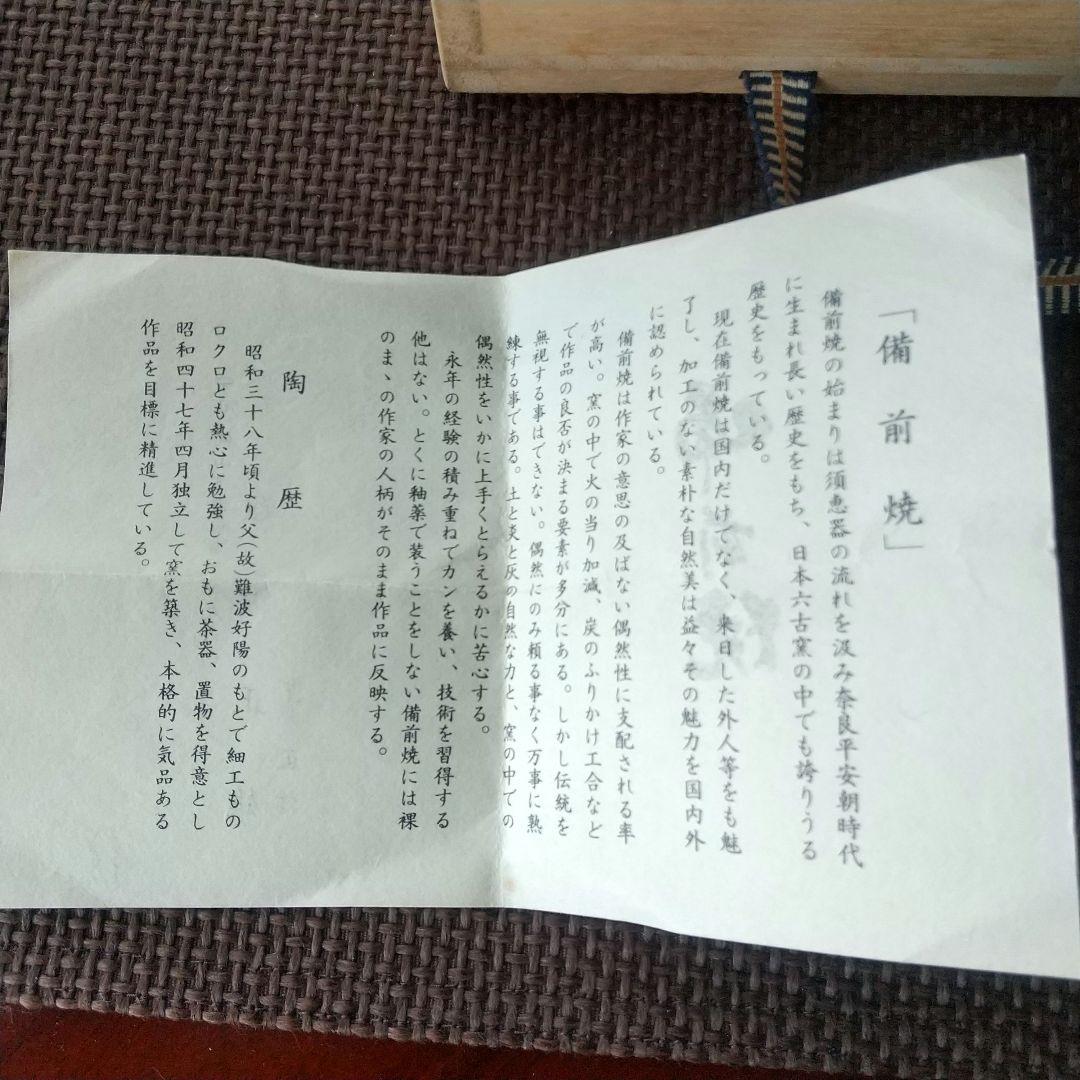 「備前焼」
備前焼の始まりは須恵器の流れを汲み奈良平安朝時代
に生まれ長い歴史をもち、日本六古窯の中でも誇りうる
歴史をもっている。
現在備前焼は国内だけでなく、来日した外人等をも魅
了し、加工のない素朴な自然美は益々その魅力を国内外
に認められている。
備前焼は作家の意思の及ばない偶然性に支配される率
が高い。窯の中で火の当り加減、炭のふりかけ工合など
で作品の良否が決まる要素が多分にある。しかし伝統を
無視する事はできない。偶然にのみ頼る事なく万事に熟
練する事である。土と炎と灰の自然な力と、窯の中での
偶然性をいかに上手くとらえるかに苦心する。
永年の経験の積み重ねでカンを養い、技術を習得する
他はない。とくに釉薬で装うことをしない備前焼には裸
のまゝの作家の人柄がそのまま作品に反映する。
陶歴
昭和三十八年頃より父(故)難波好陽のもとで細工もの
ロクロとも熱心に勉強し、おもに茶器、置物を得意とし
昭和四十七年四月独立して窯を築き、本格的に気品ある
作品を目標に精進している。